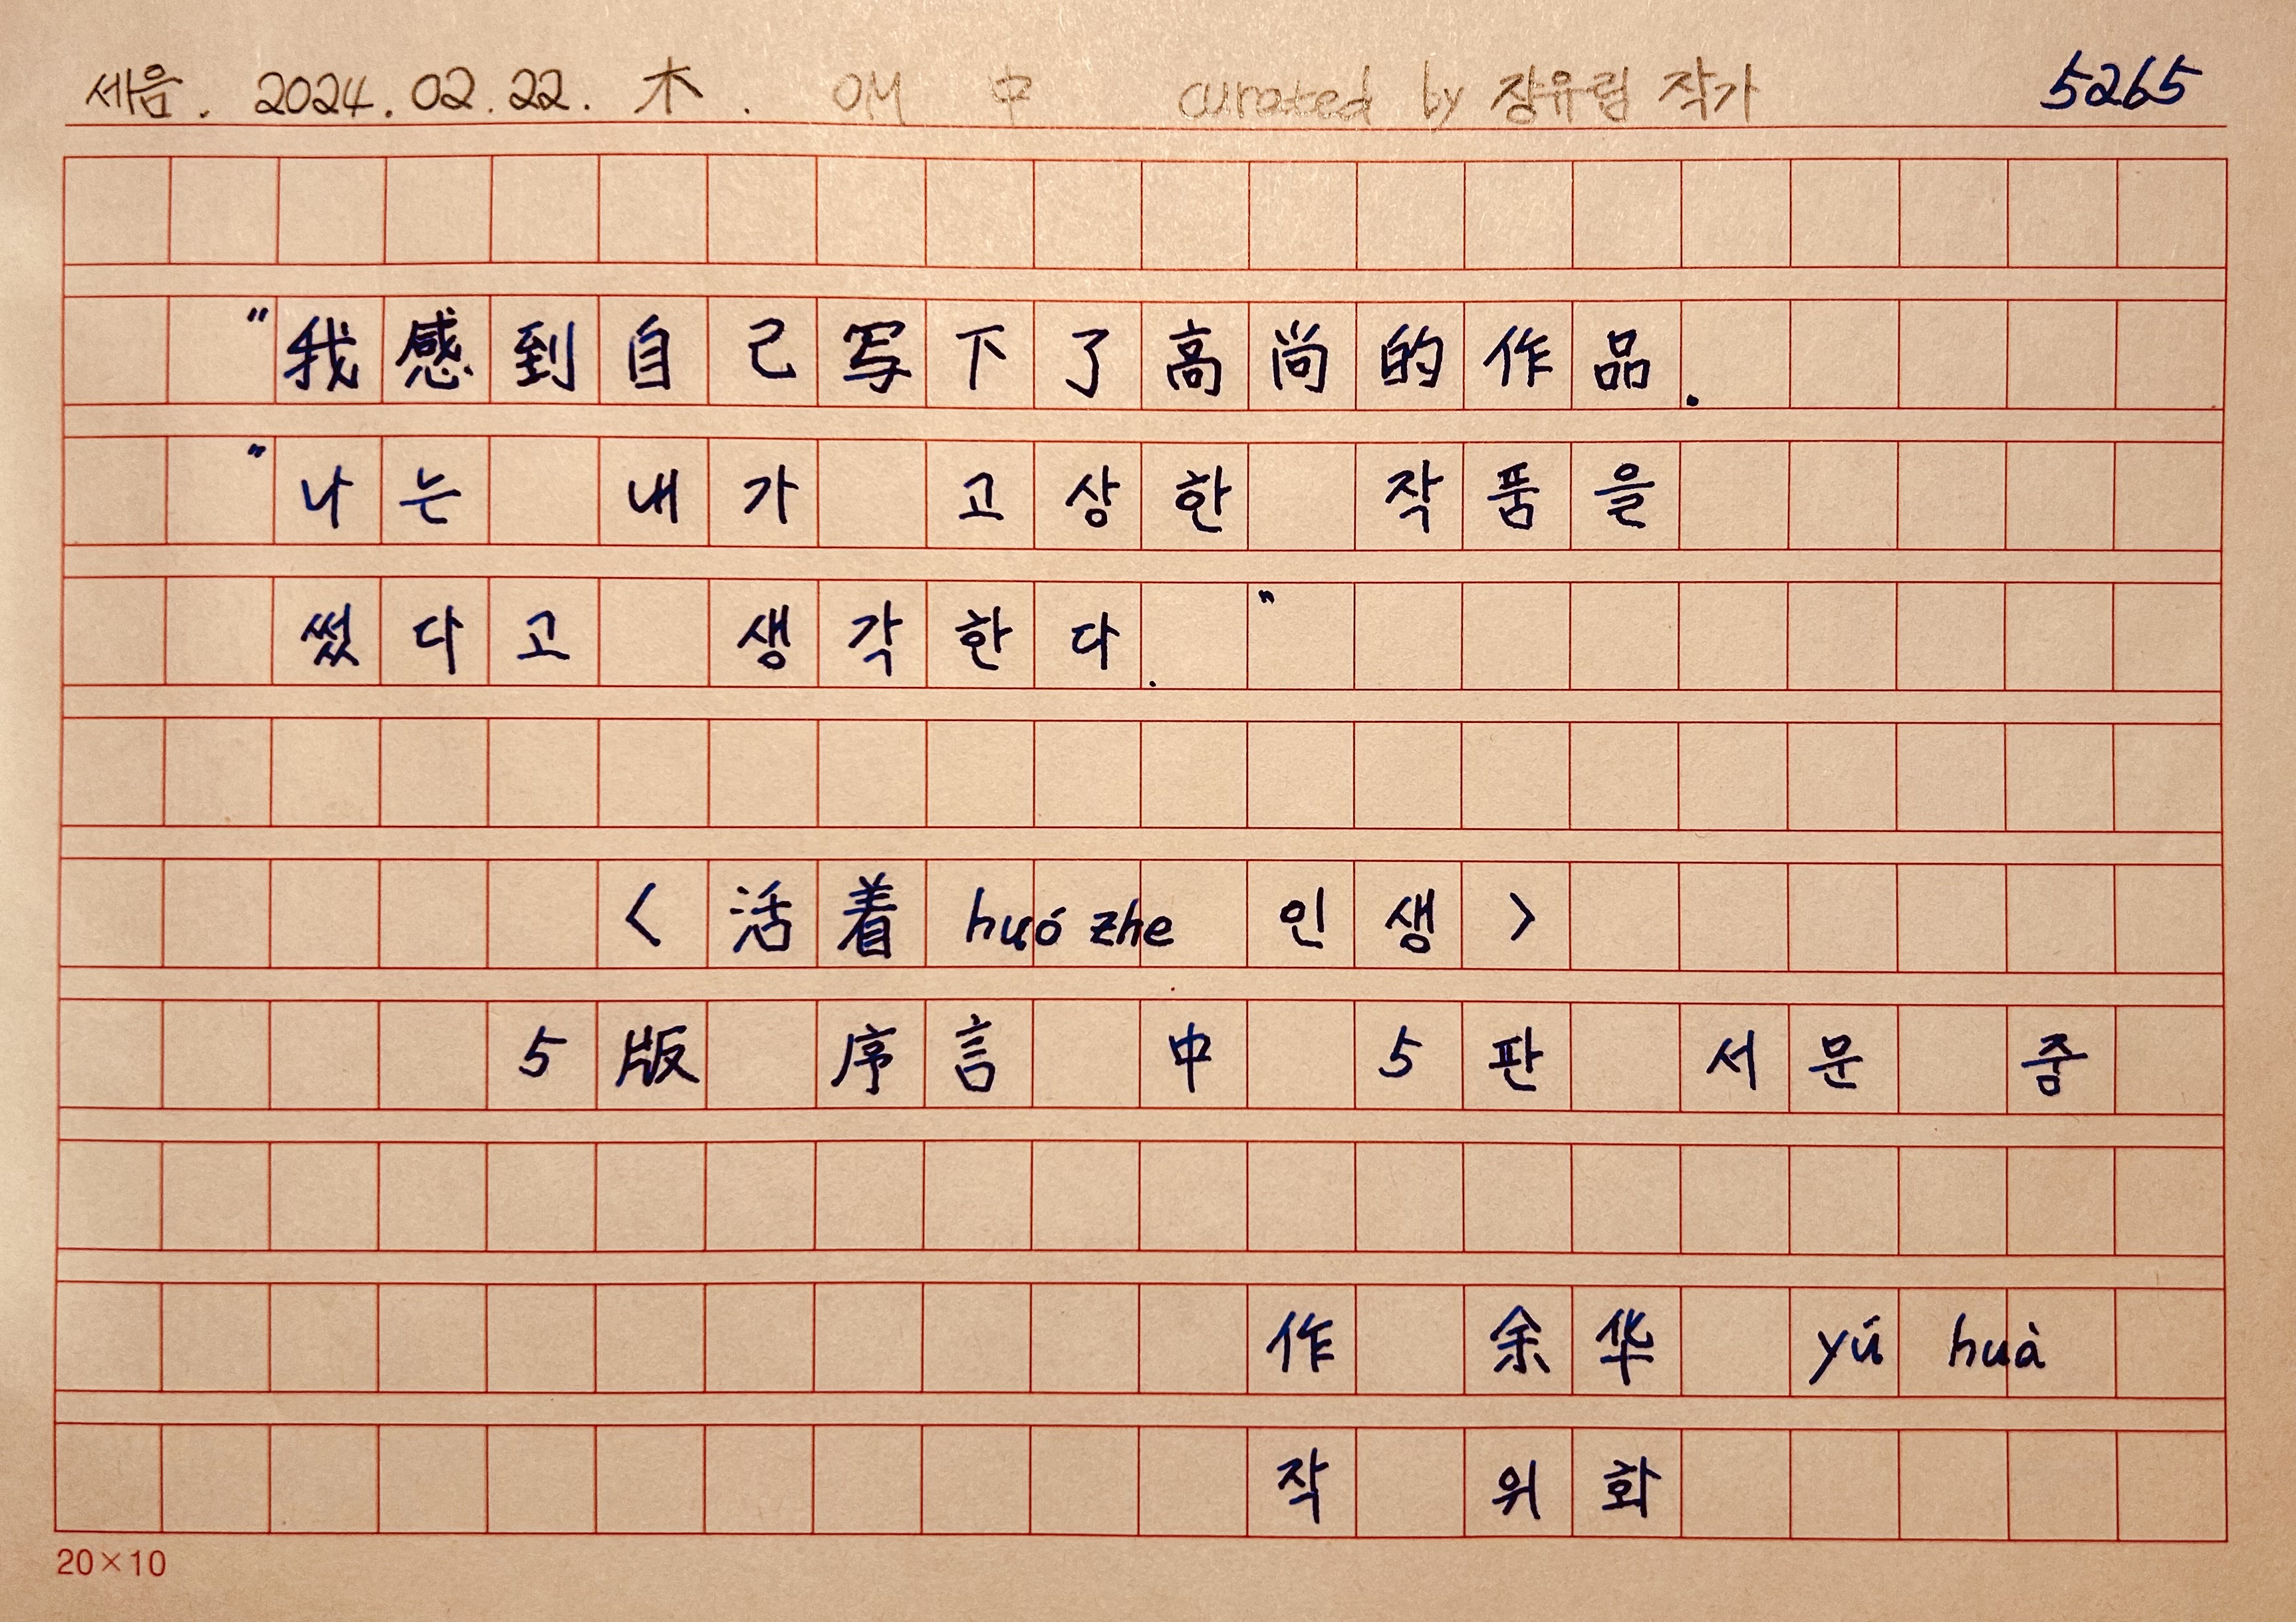 세음. 2024.02.22. 木. OM 中 curated by 장유림 작가 5265
"我感到自己写下了高尚的作品.
"나는 내가 고상한 작품을
썼다고 생각한다."
<活着 huó zhe 인생>
5版 序言 中 5판 서문 중
作 余华 yú huà
작 위화
20×10